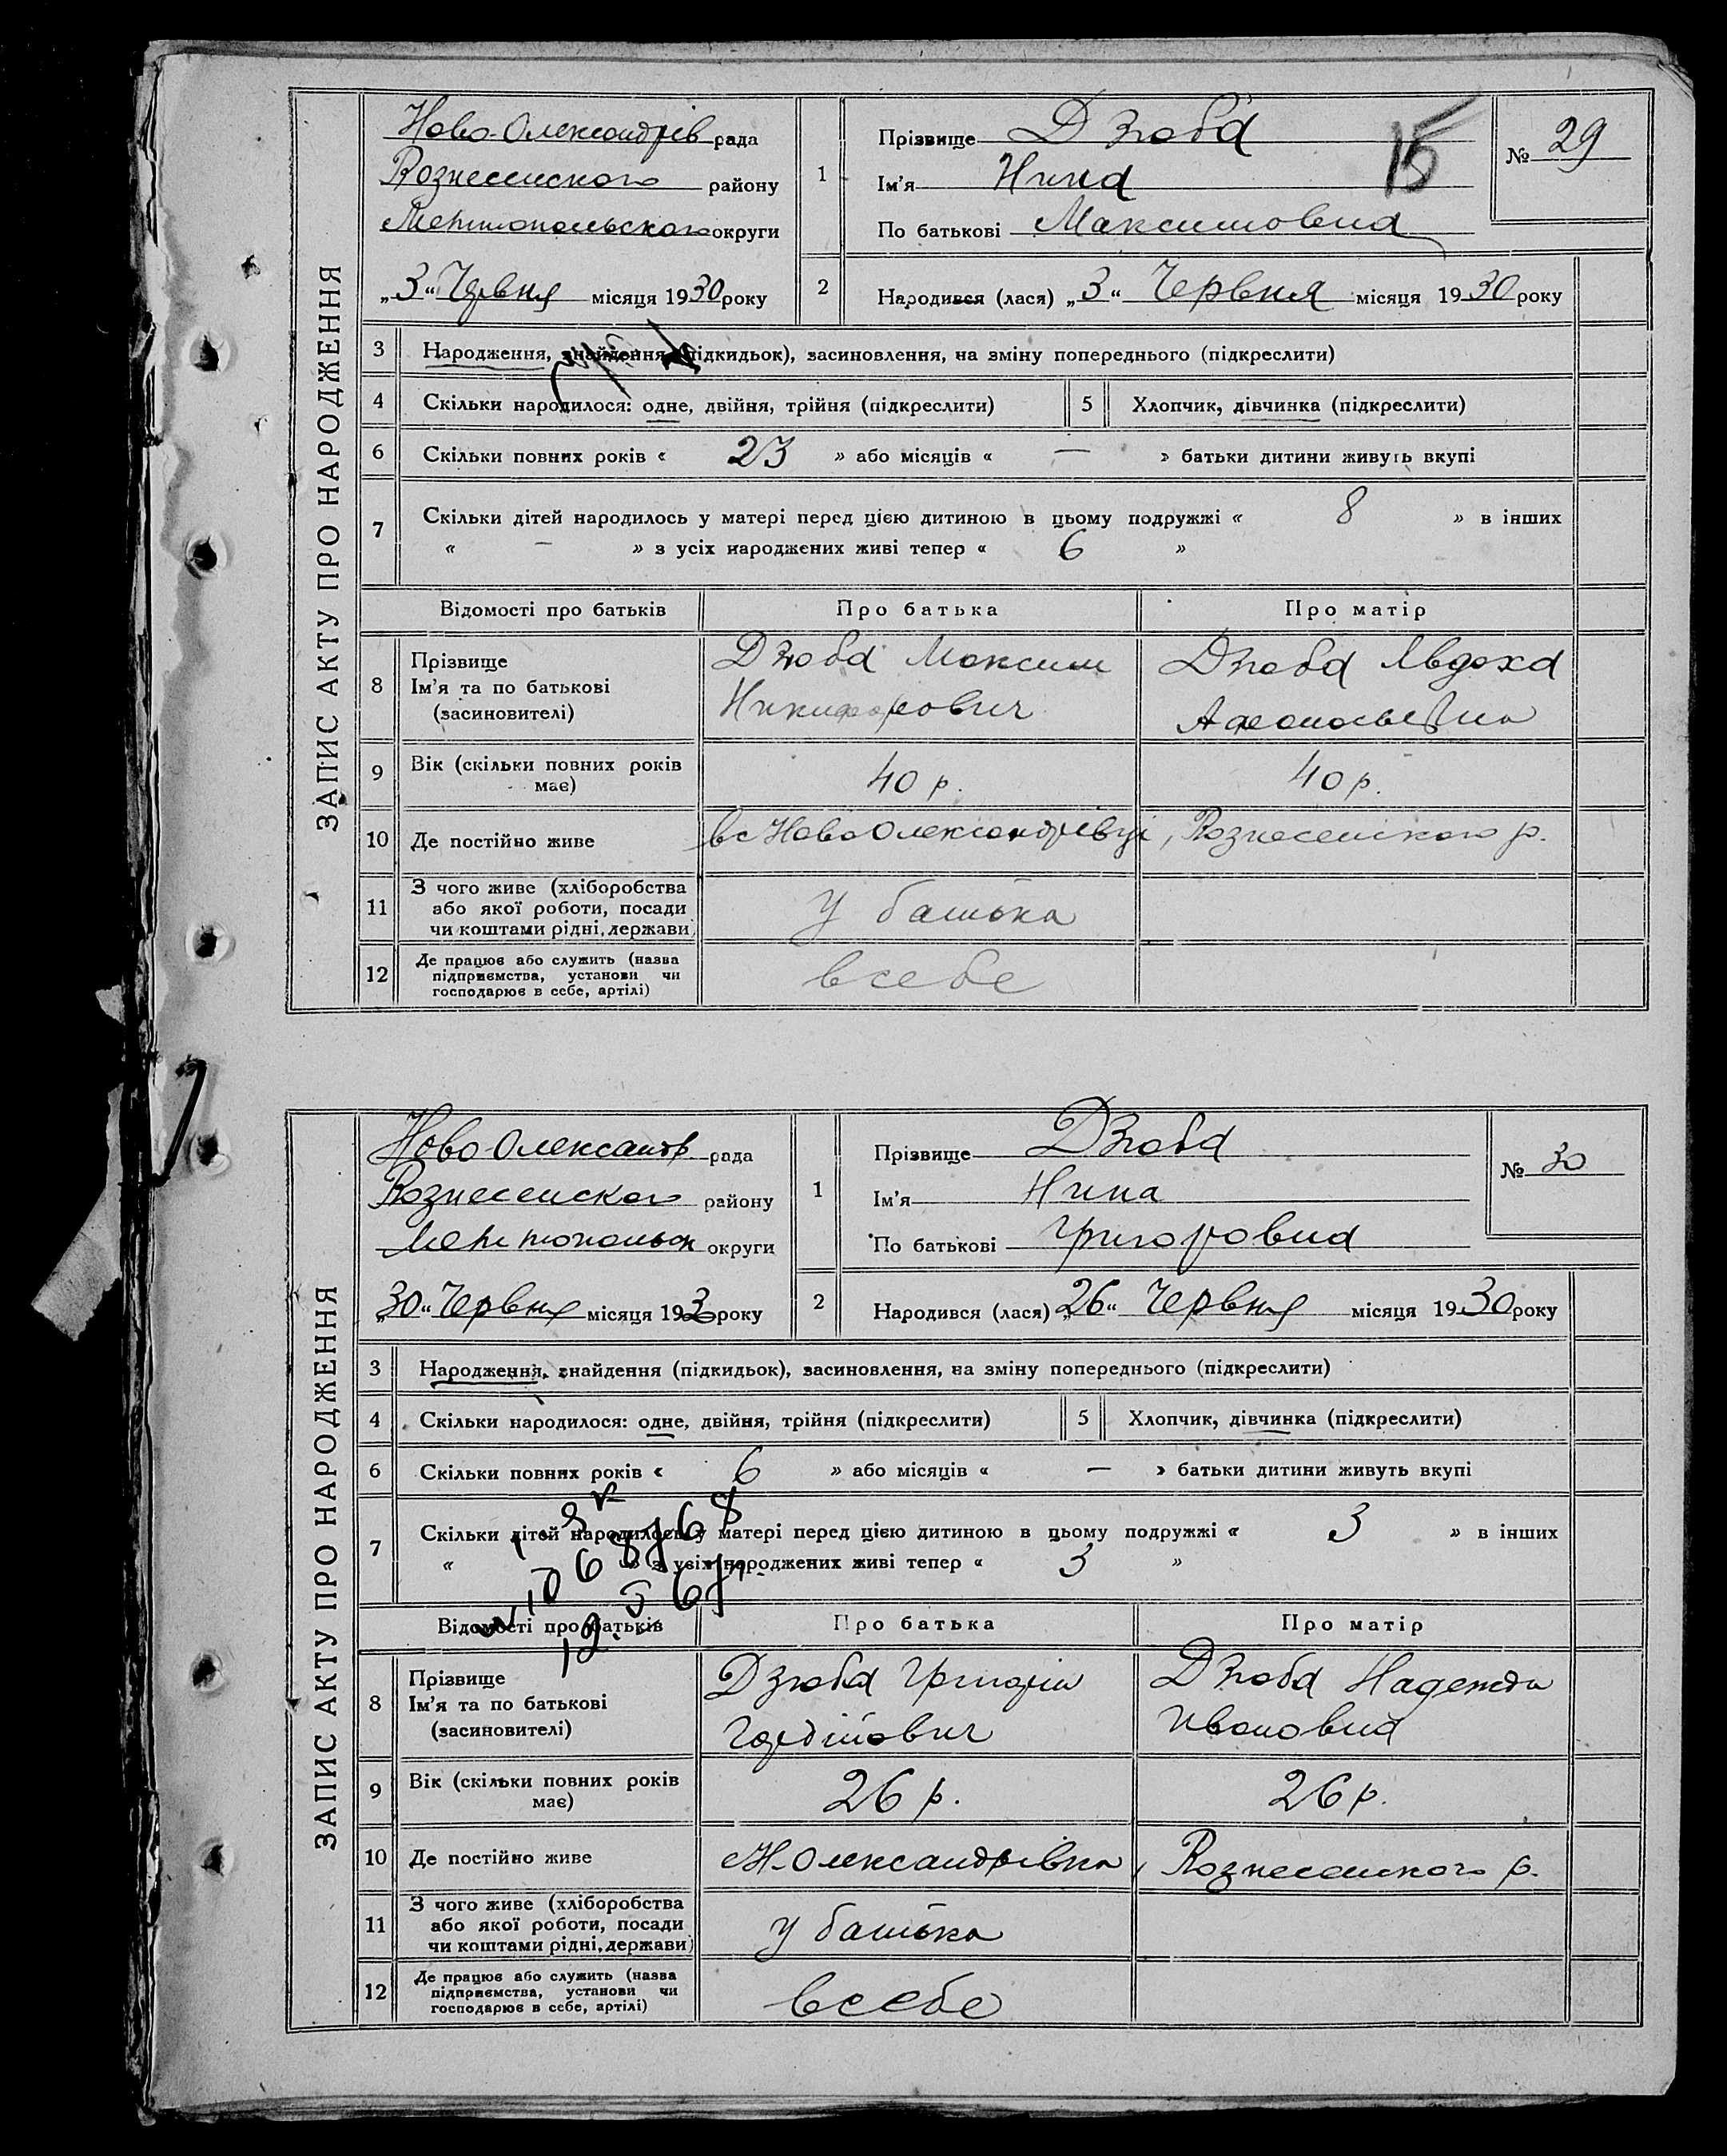 ЗАПИС АКТУ ПРО НАРОДЖЕННЯ
Ново-Олександрів рада
Вознесенского району
Мелитопольского округи
„3“ Червня місяця 1930 року
15
№ 29
1 Прізвище Дзюба
Ім’я Нина
По батькові Максимовна
2 Народився (лася) „3“ Червня місяця 1930 року
3 Народження, знайдення (підкидьок), засиновлення, на зміну попереднього (підкреслити)
4 Скільки народилося: одне, двійня, трійня (підкреслити) 5 Хлопчик, дівчинка (підкреслити)
6 Скільки повних років « 23 » або місяців « — » батьки дитини живуть вкупі
7 Скільки дітей народилось у матері перед цією дитиною в цьому подружжі « 8 » в інших
« — » з усіх народжених живі тепер « 6 »
Відомості про батьків Про батька Про матір
8 Прізвище Ім’я та по батькові (засиновителі)
Дзюба Максим Никифорович
Дзюба Явдоха
9 Вік (скільки повних років має) 40 р. 40 р.
10 Де постійно живе в с Ново Олександрівці, Вознесенского р.
11 З чого живе (хліборобства або якої роботи, посади чи коштами рідні, держави) У батька
12 Де працює або служить (назва підприємства, установи чи господарює в себе, артілі) в себе
ЗАПИС АКТУ ПРО НАРОДЖЕННЯ
Ново Олександр рада
Вознесенского району
Мелитопольск округи
„30“ Червня місяця 193 року
№ 30
1 Прізвище Дзюба
Ім’я Нина
По батькові Григоровна
2 Народився (лася) „26“ Червня місяця 1930 року
3 Народження, знайдення (підкидьок), засиновлення, на зміну попереднього (підкреслити)
4 Скільки народилося: одне, двійня, трійня (підкреслити) 5 Хлопчик, дівчинка (підкреслити)
6 Скільки повних років « 6 » або місяців « — » батьки дитини живуть вкупі
7 Скільки дітей народилось у матері перед цією дитиною в цьому подружжі « 3 » в інших
« » з усіх народжених живі тепер « 3 »
Відомості про батьків Про батька Про матір
8 Прізвище Ім’я та по батькові (засиновителі)
Дзюба Григорій Гордійович
Дзюба Надежда Ивановна
9 Вік (скільки повних років має) 26 р. 26 р.
10 Де постійно живе с Н-Олександрівка, Вознесенского р.
11 З чого живе (хліборобства або якої роботи, посади чи коштами рідні, держави) У батька
12 Де працює або служить (назва підприємства, установи чи господарює в себе, артілі) в себе